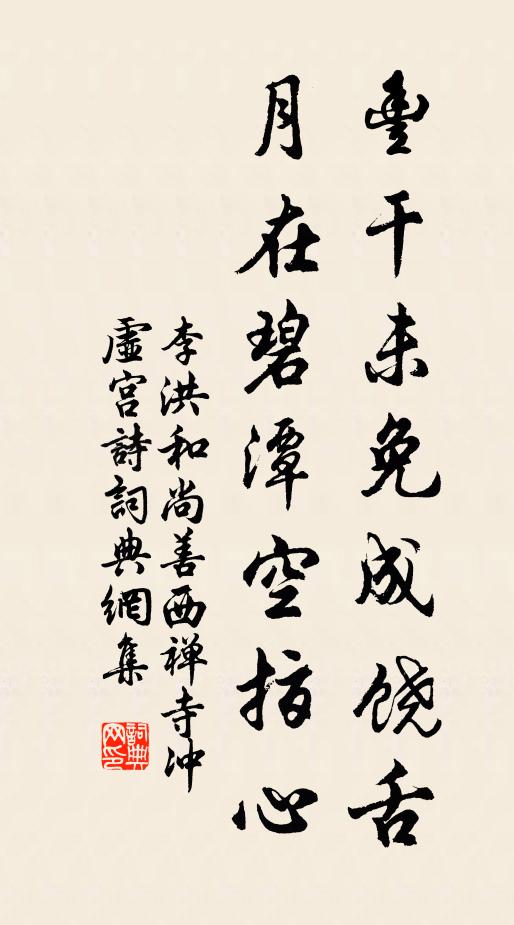 豊干未免成饶舌
月在碧潭空指心
李洪和尚善西禅寺冲
虚宫詩詞典網集
詞典
网印